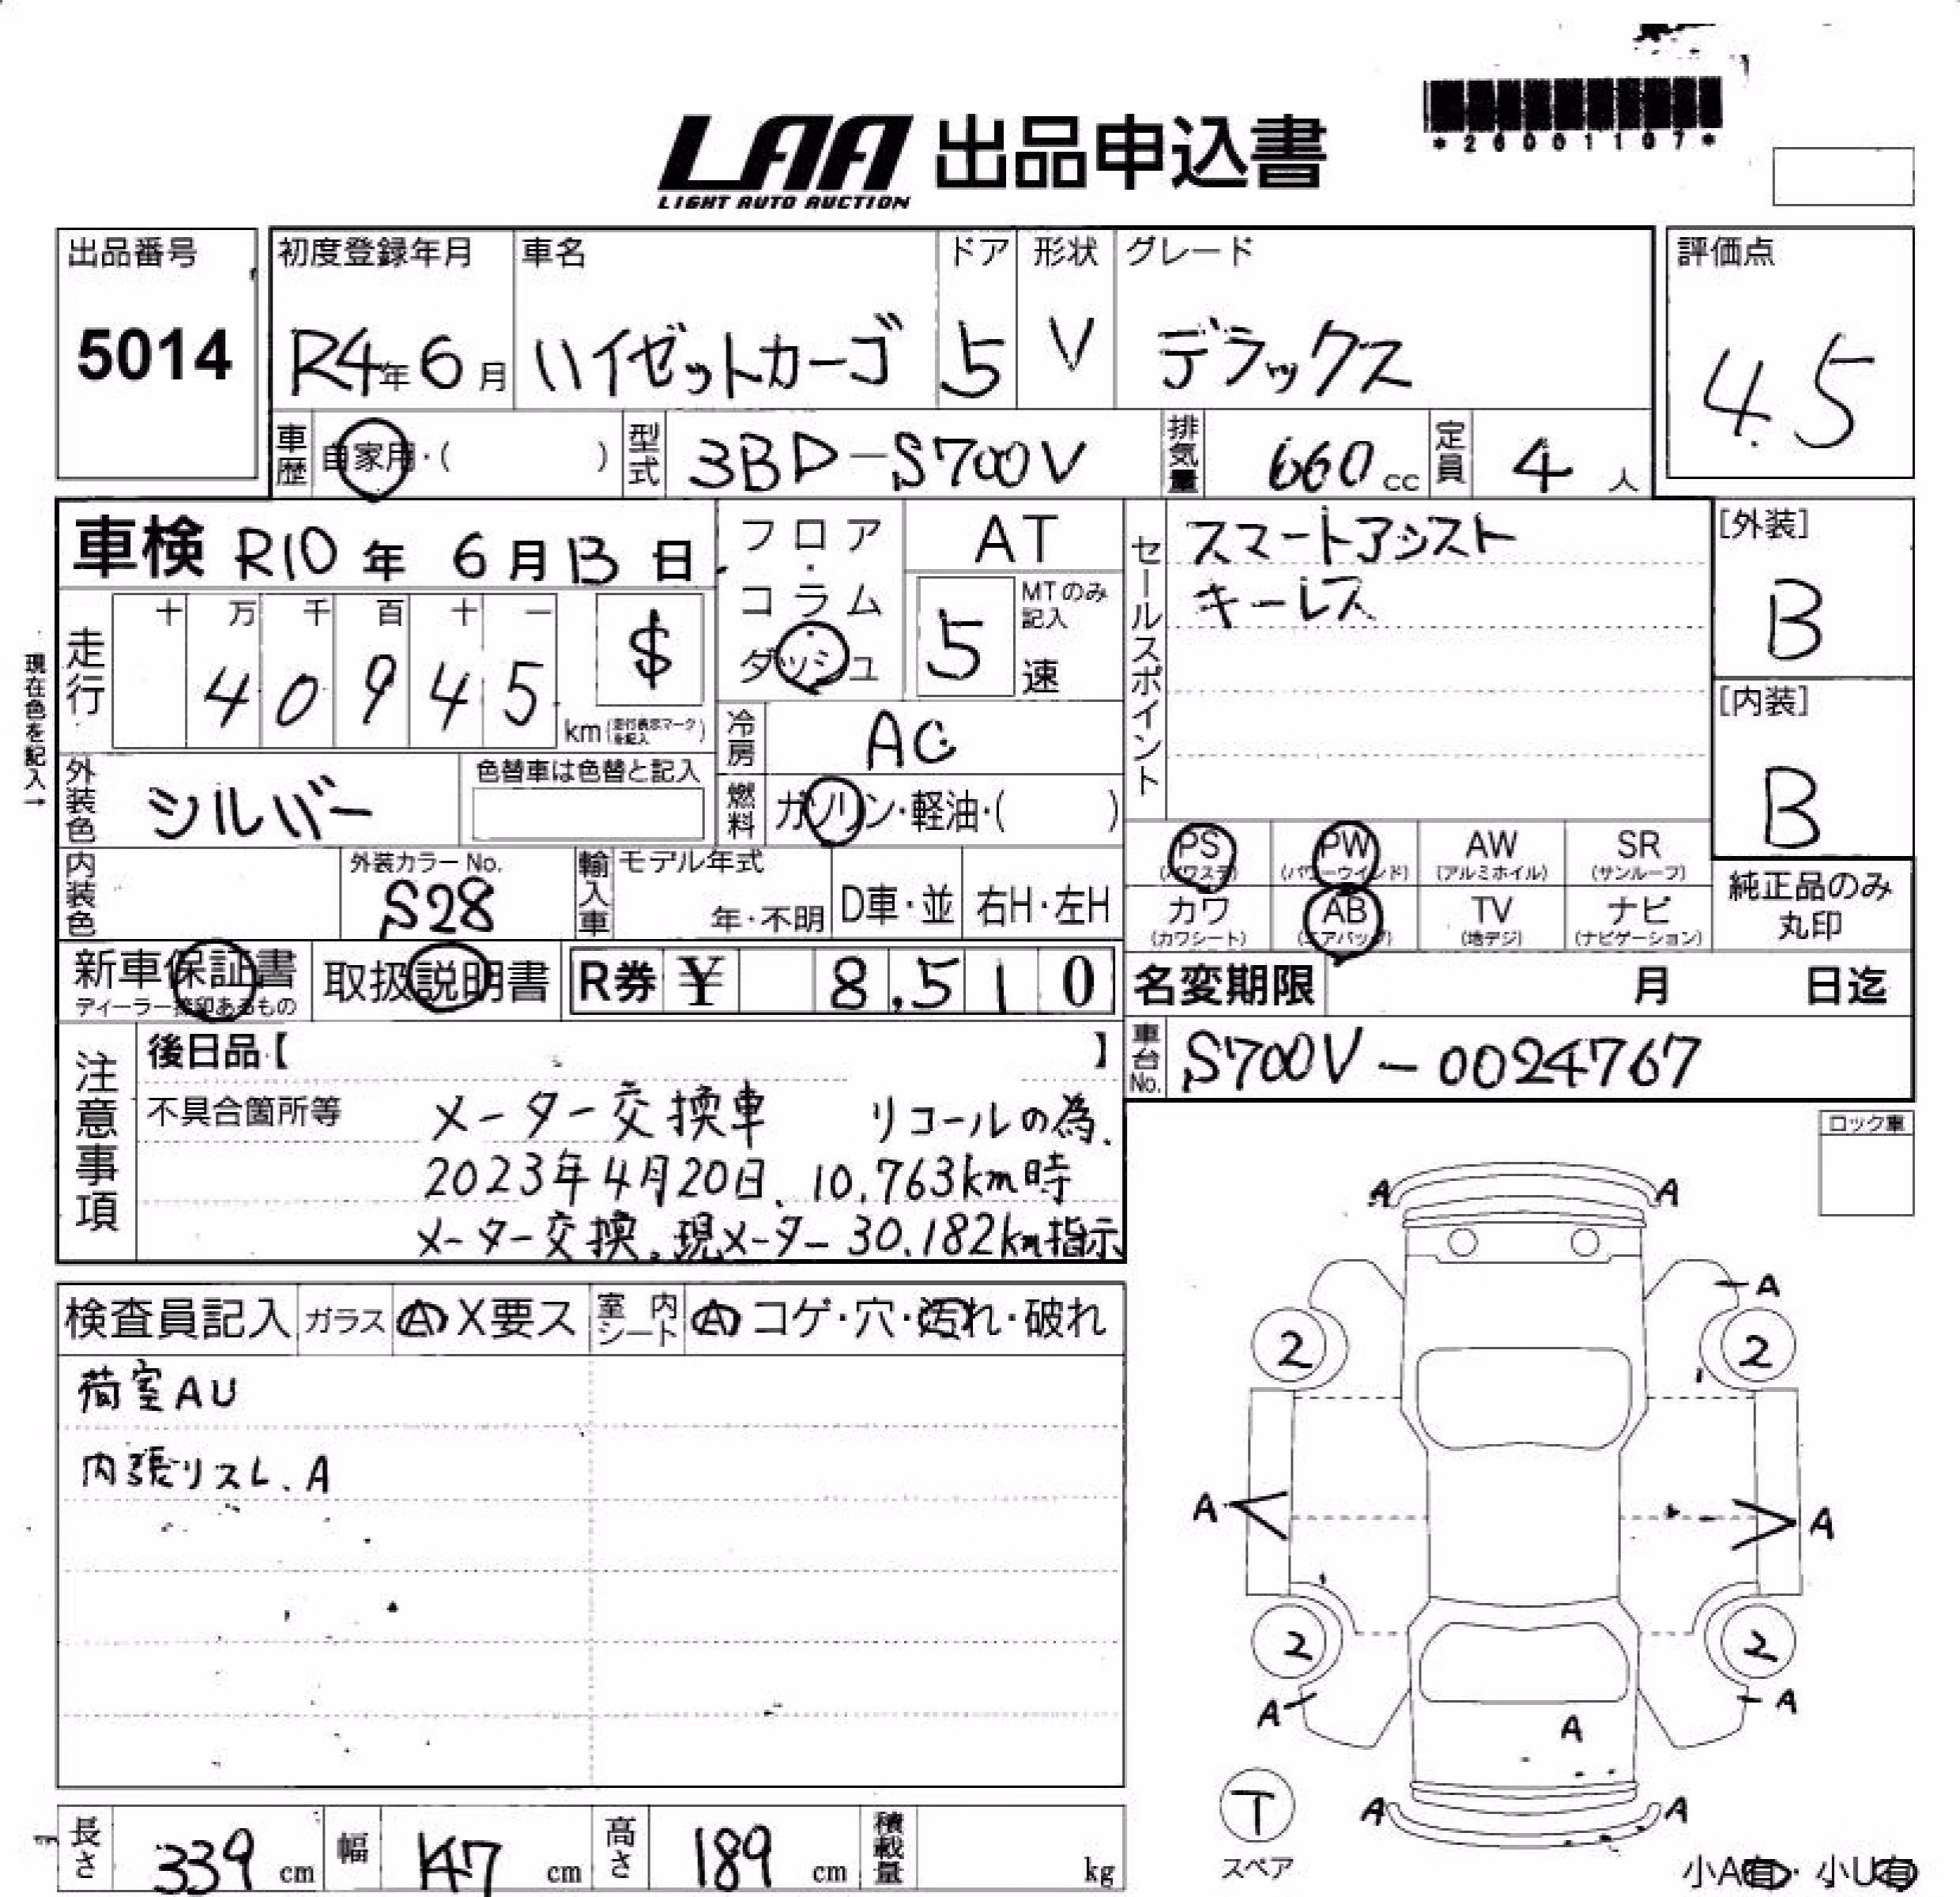 *26001107*
LAA 出品申込書
LIGHT AUTO AUCTION
出品番号
5014
初度登録年月
R4年6月
車名
ハイゼットカーゴ
ドア
5
形状
V
グレード
デラックス
評価点
4.5
車歴 自家用・( )
型式 3BD-S700V
排気量 660cc
定員 4人
車検 R10年 6月13日
フロア・コラム・ダッシュ
AT
5
MTのみ記入
速
セールスポイント
スマートアシスト
キーレス
[外装]
B
[内装]
B
現在色を記入→
走行
十 万 千 百 十 一
4 0 9 4 5
km
$
冷房 AC
外装色 シルバー
色替車は色替と記入
燃料 ガソリン・軽油・( )
内装色
外装カラーNo.
S28
輸入車
モデル年式
年・不明
D車・並
右H・左H
PS
(パワステ)
PW
(パワーウインド)
AW
(アルミホイル)
SR
(サンルーフ)
カワ
(カワシート)
AB
(エアバッグ)
TV
(地デジ)
ナビ
(ナビゲーション)
純正品のみ
丸印
新車保証書
取扱説明書
R券 ¥ 8,510
名変期限 月 日迄
車台No. S700V-0024767
注意事項
後日品【 】
不具合箇所等
メーター交換車 リコールの為.
2023年4月20日、10,763km時
メーター交換。現メーター30,182km指示
ロック車
検査員記入
ガラス A X要ス
室内シート A コゲ・穴・汚れ・破れ
荷室AU
内張リスレ、A
A A
A
2 2
A A
2 2
A A
A
A A
T
スペア
小A有・小U有
長さ 339cm
幅 147cm
高さ 189cm
積載量 kg